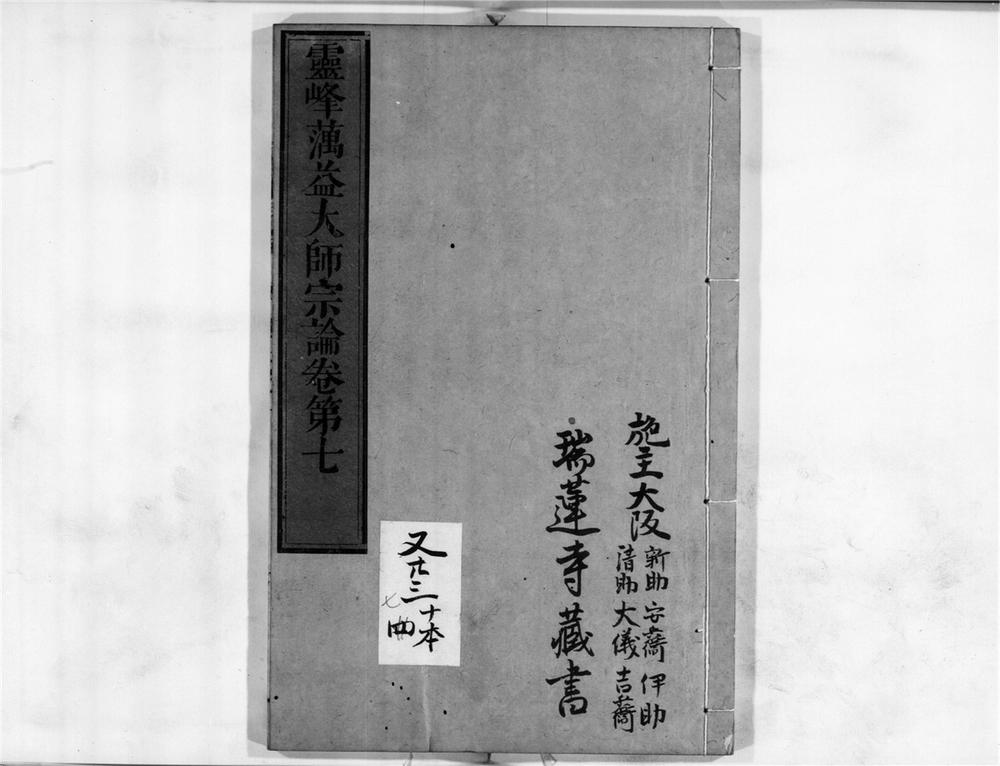 施主大阪
新助
伊助
清助 大儀
瑞蓮寺藏書
又廿三
十本
靈峰蕅益大師宗論卷第七